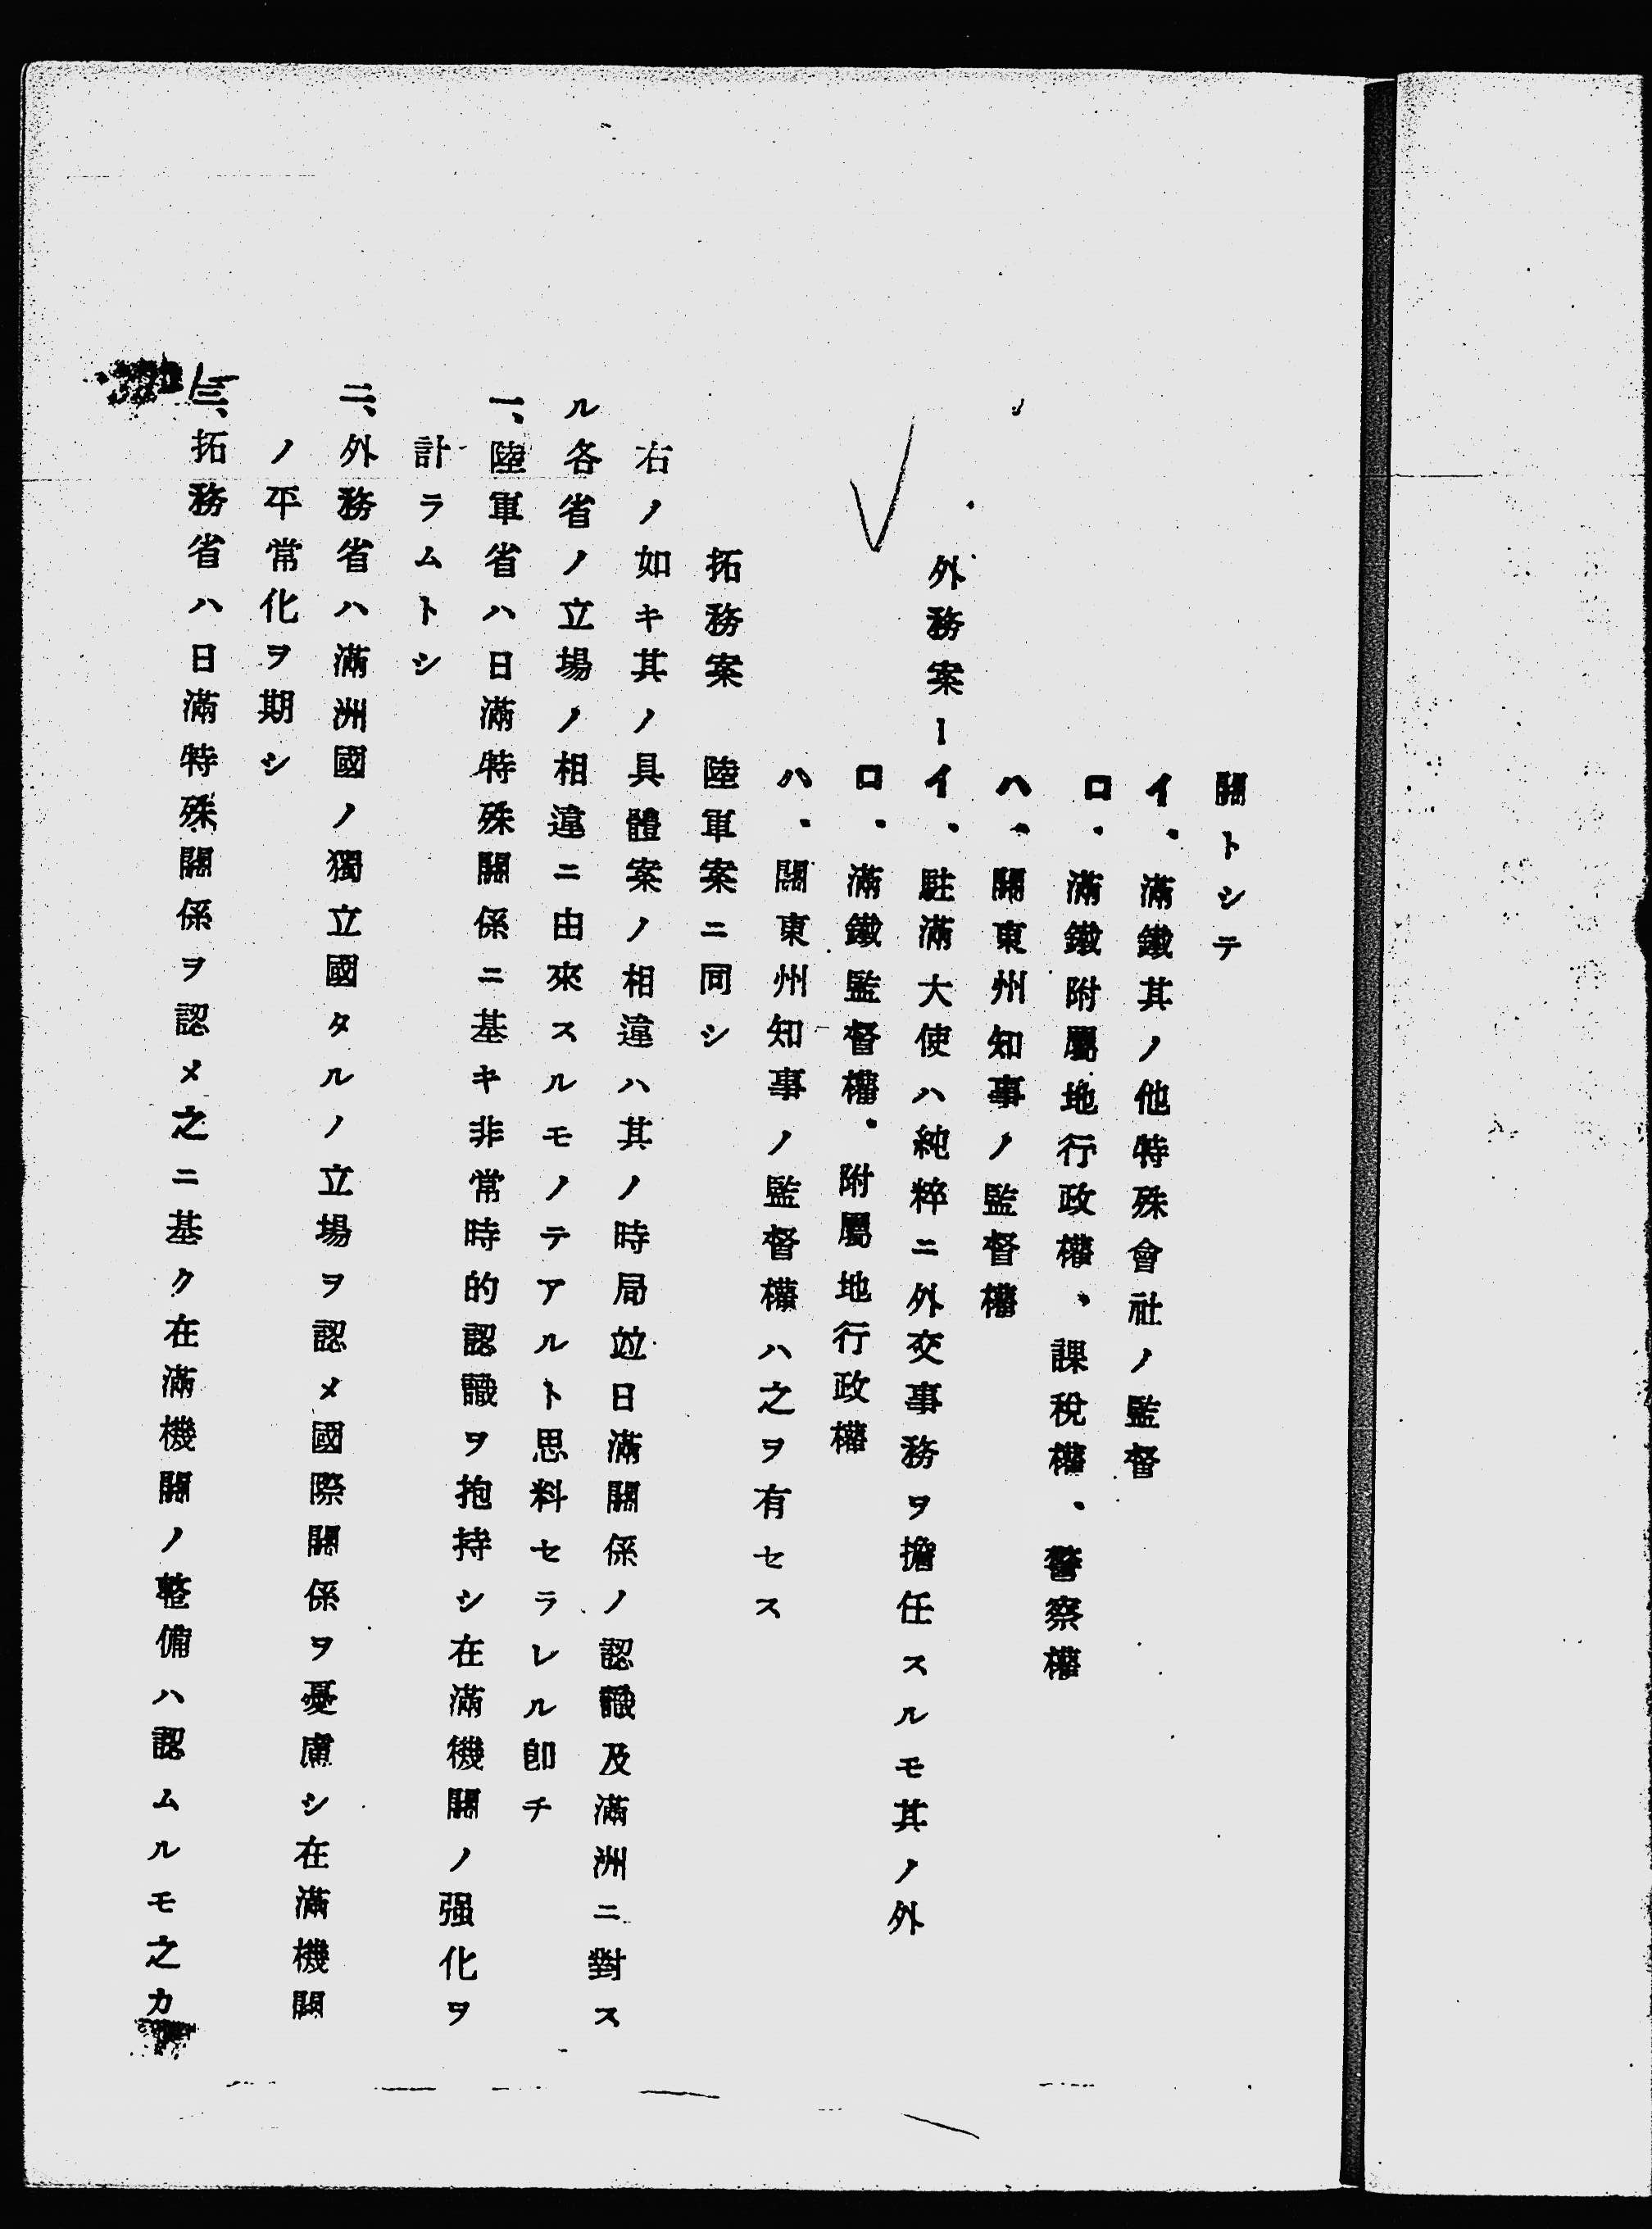 關トシテ
イ、滿鐵其ノ他特殊會社ノ監督
ロ、滿鐵附屬地行政權、課稅權、警察權
ハ、關東州知事ノ監督權
外務案ーイ、駐滿大使ハ純粹ニ外交事務ヲ擔任スルモ其ノ外
ロ、滿鐵監督權、附屬地行政權
ハ、關東州知事ノ監督權ハ之ヲ有セス
拓務案　陸軍案ニ同シ
右ノ如キ其ノ具體案ノ相違ハ其ノ時局竝日滿關係ノ認識及滿洲ニ對ス
ル各省ノ立場ノ相違ニ由來スルモノテアルト思料セラレル卽チ
一、陸軍省ハ日滿特殊關係ニ基キ非常時的認識ヲ抱持シ在滿機關ノ强化ヲ
計ラムトシ
二、外務省ハ滿洲國ノ獨立國タルノ立場ヲ認メ國際關係ヲ憂慮シ在滿機關
ノ平常化ヲ期シ
三、拓務省ハ日滿特殊關係ヲ認メ之ニ基ク在滿機關ノ整備ハ認ムルモ之カ